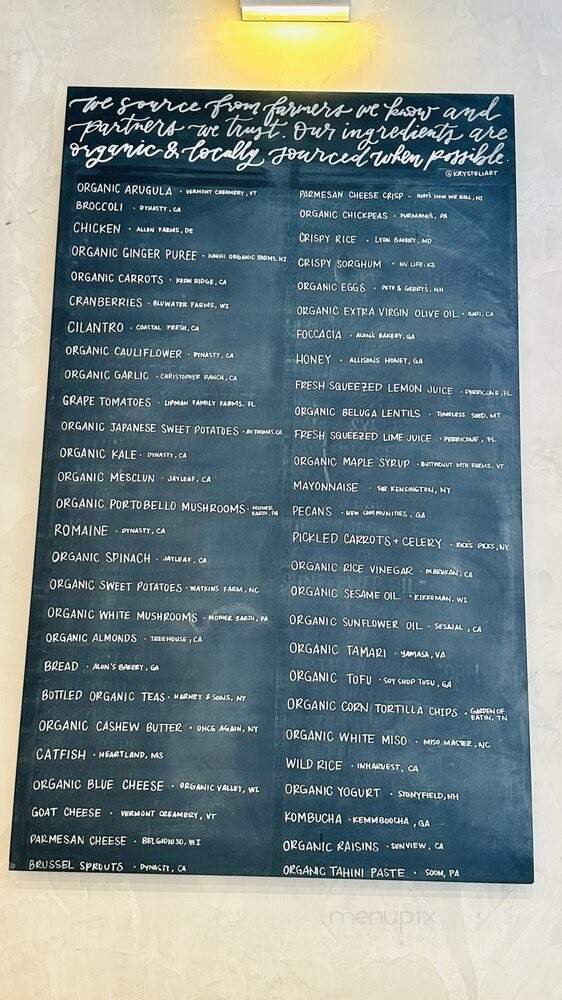 we source from farmers we know and
partners we trust. Our ingredients are
organic & locally sourced when possible.
@KRYSTELIART
ORGANIC ARUGULA • VERMONT CREAMERY, VT
BROCCOLI • DYNASTY, CA
CHICKEN • ALLEN FARMS, DE
ORGANIC GINGER PUREE • KAUAI ORGANIC FARMS, HI
ORGANIC CARROTS • KERN RIDGE, CA
CRANBERRIES • BLUWATER FARMS, WI
CILANTRO • COASTAL FRESH, CA
ORGANIC CAULIFLOWER • DYNASTY, CA
ORGANIC GARLIC • CHRISTOPHER RANCH, CA
GRAPE TOMATOES • LIPMAN FAMILY FARMS, FL
ORGANIC JAPANESE SWEET POTATOES • AV THOMAS, CA
ORGANIC KALE • DYNASTY, CA
ORGANIC MESCLUN • JAYLEAF, CA
ORGANIC PORTOBELLO MUSHROOMS • MOTHER EARTH, PA
ROMAINE • DYNASTY, CA
ORGANIC SPINACH • JAYLEAF, CA
ORGANIC SWEET POTATOES • WATKINS FARM, NC
ORGANIC WHITE MUSHROOMS • MOTHER EARTH, PA
ORGANIC ALMONDS • TREEHOUSE, CA
BREAD • ALON'S BAKERY, GA
BOTTLED ORGANIC TEAS • HARNEY & SONS, NY
ORGANIC CASHEW BUTTER • ONCE AGAIN, NY
CATFISH • HEARTLAND, MS
ORGANIC BLUE CHEESE • ORGANIC VALLEY, WI
GOAT CHEESE • VERMONT CREAMERY, VT
PARMESAN CHEESE • BELGIOIOSO, WI
BRUSSEL SPROUTS • DYNASTY, CA
PARMESAN CHEESE CRISP • THAT'S HOW WE ROLL, NJ
ORGANIC CHICKPEAS • FURMANO'S, PA
CRISPY RICE • LYON BAKERY, MD
CRISPY SORGHUM • NU LIFE, KS
ORGANIC EGGS • PETE & GERRY'S, NH
ORGANIC EXTRA VIRGIN OLIVE OIL • BARI, CA
FOCCACIA • ALON'S BAKERY, GA
HONEY • ALLISONS HONEY, GA
FRESH SQUEEZED LEMON JUICE • PERRICONE, FL
ORGANIC BELUGA LENTILS • TIMELESS SEED, MT
FRESH SQUEEZED LIME JUICE • PERRICONE, FL
ORGANIC MAPLE SYRUP • BUTTERNUT MTN FARMS, VT
MAYONNAISE • SIR KENSINGTON, NY
PECANS • NEW COMMUNITIES, GA
PICKLED CARROTS + CELERY • RICK'S PICKS, NY
ORGANIC RICE VINEGAR • MARUKAN, CA
ORGANIC SESAME OIL • KIKKOMAN, WI
ORGANIC SUNFLOWER OIL • SESAJAL, CA
ORGANIC TAMARI • YAMASA, VA
ORGANIC TOFU • SOY SHOP TOFU, GA
ORGANIC CORN TORTILLA CHIPS • GARDEN OF EATIN, TN
ORGANIC WHITE MISO • MISO MASTER, NC
WILD RICE • INHARVEST, CA
ORGANIC YOGURT • STONYFIELD, NH
KOMBUCHA • KEMMBOOCHA, GA
ORGANIC RAISINS • SUNVIEW, CA
ORGANIC TAHINI PASTE • SOOM, PA
menupix